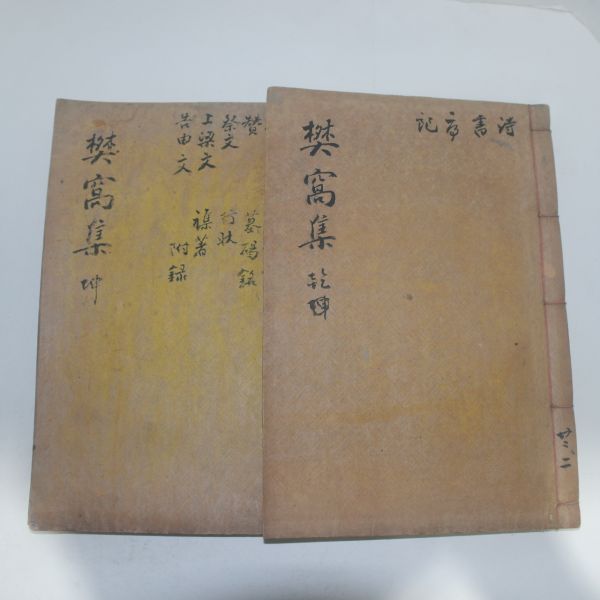 詩
書
序
記
樊窩集 乾坤
贊 墓碣銘
祭文 行狀
上梁文 襍著
告由文 附録
樊窩集 坤